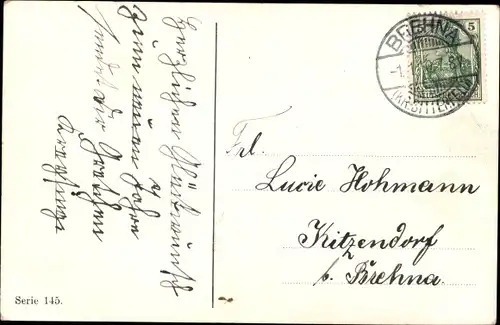 Herzlichen Glückwunsch
zum neuen Jahre
sendet Dir Gretchen
BREHNA
(KR. BITTERFELD)
5
Frl.
Lucie Hohmann
Kitzendorf
b. Brehna.
Serie 145.